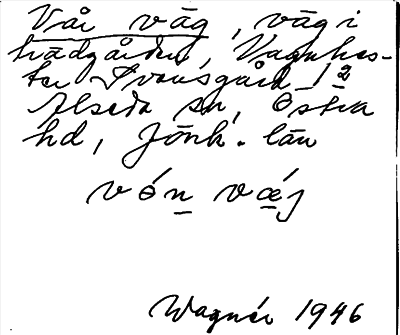 Vår väg, väg i
trädgården, Vagnhes-
ter Ivansgård 1²
Alseda sn, Östra
hd, Jönk. län
vón vǽj
Wagnér 1946